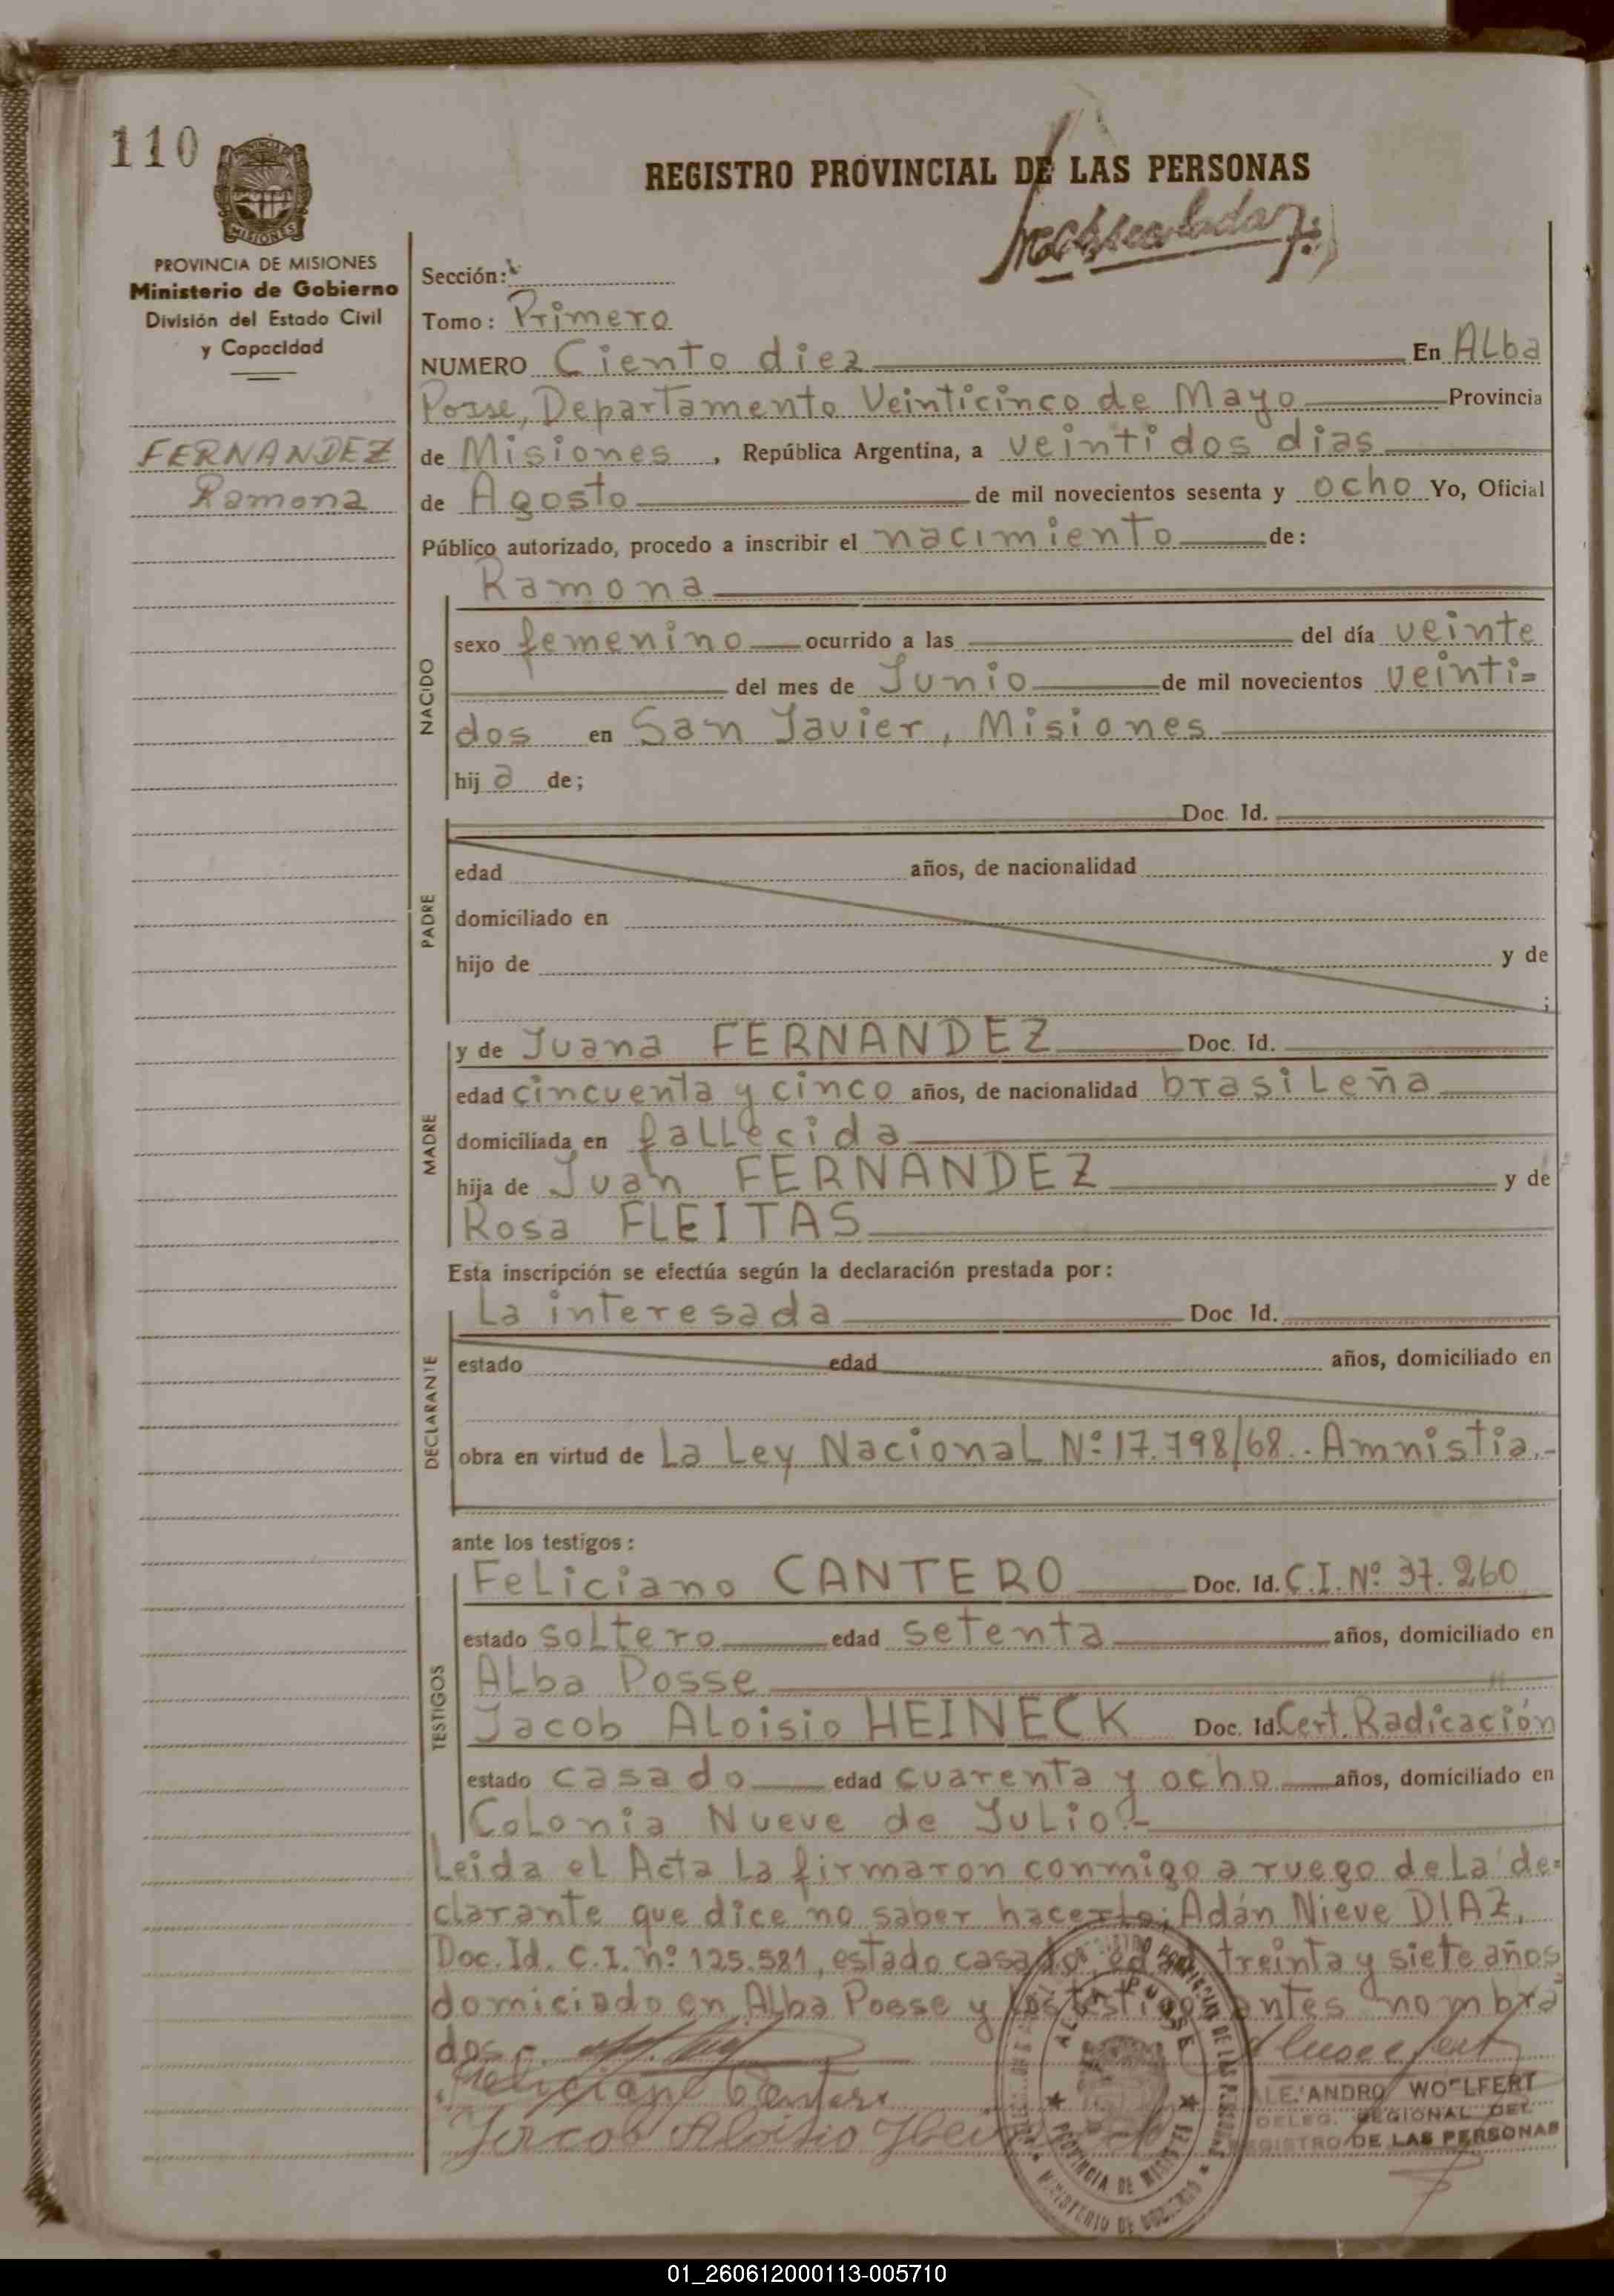 110
REGISTRO PROVINCIAL DE LAS PERSONAS
MISIONES
PROVINCIA DE MISIONES
Ministerio de Gobierno
División del Estado Civil
y Capacidad
FERNANDEZ
Ramona
Sección:
Tomo: Primero
NUMERO Ciento diez En ALba
Posse, Departamento Veinticinco de Mayo Provincia
de Misiones, República Argentina, a veintidos dias
de Agosto de mil novecientos sesenta y ocho Yo, Oficial
Público autorizado, procedo a inscribir el nacimiento de:
Ramona
NACIDO
sexo femenino ocurrido a las del día veinte
del mes de Junio de mil novecientos veinti=
dos en San Javier, Misiones
hij a de;
PADRE
Doc. Id.
edad años, de nacionalidad
domiciliado en
hijo de y de
;
MADRE
y de Juana FERNANDEZ Doc. Id.
edad cincuenta y cinco años, de nacionalidad brasiLeña
domiciliada en faLLecida
hija de Juan FERNANDEZ y de
Rosa FLEITAS
Esta inscripción se efectúa según la declaración prestada por:
DECLARANTE
La interesada Doc. Id.
estado edad años, domiciliado en
obra en virtud de La Ley NacionaL Nº 17.798/68.- Amnistia.-
ante los testigos:
TESTIGOS
FeLiciano CANTERO Doc. Id. C.I. Nº 37.260
estado soLtero edad setenta años, domiciliado en
ALba Posse
Jacob ALoisio HEINECK Doc. Id. Cert. Radicación
estado casado edad cuarenta y ocho años, domiciliado en
CoLonia Nueve de JuLio.-
Leida el Acta La firmaron conmigo a ruego de La de=
clarante que dice no saber hacerLo; Adán Nieve DIAZ,
Doc. Id. C.I. nº 125.581, estado casado, edad treinta y siete años
domiciado en Alba Posse y Los testigos antes nombra
dos.-
Feliciano Cantero
Jacob Aloisio Heineck
ALEJANDRO WOLFERT
DELEG. REGIONAL DEL
REGISTRO DE LAS PERSONAS
ALBA POSSE
PROVINCIA DE MISIONES
MINISTERIO DE GOBIERNO
01_260612000113-005710